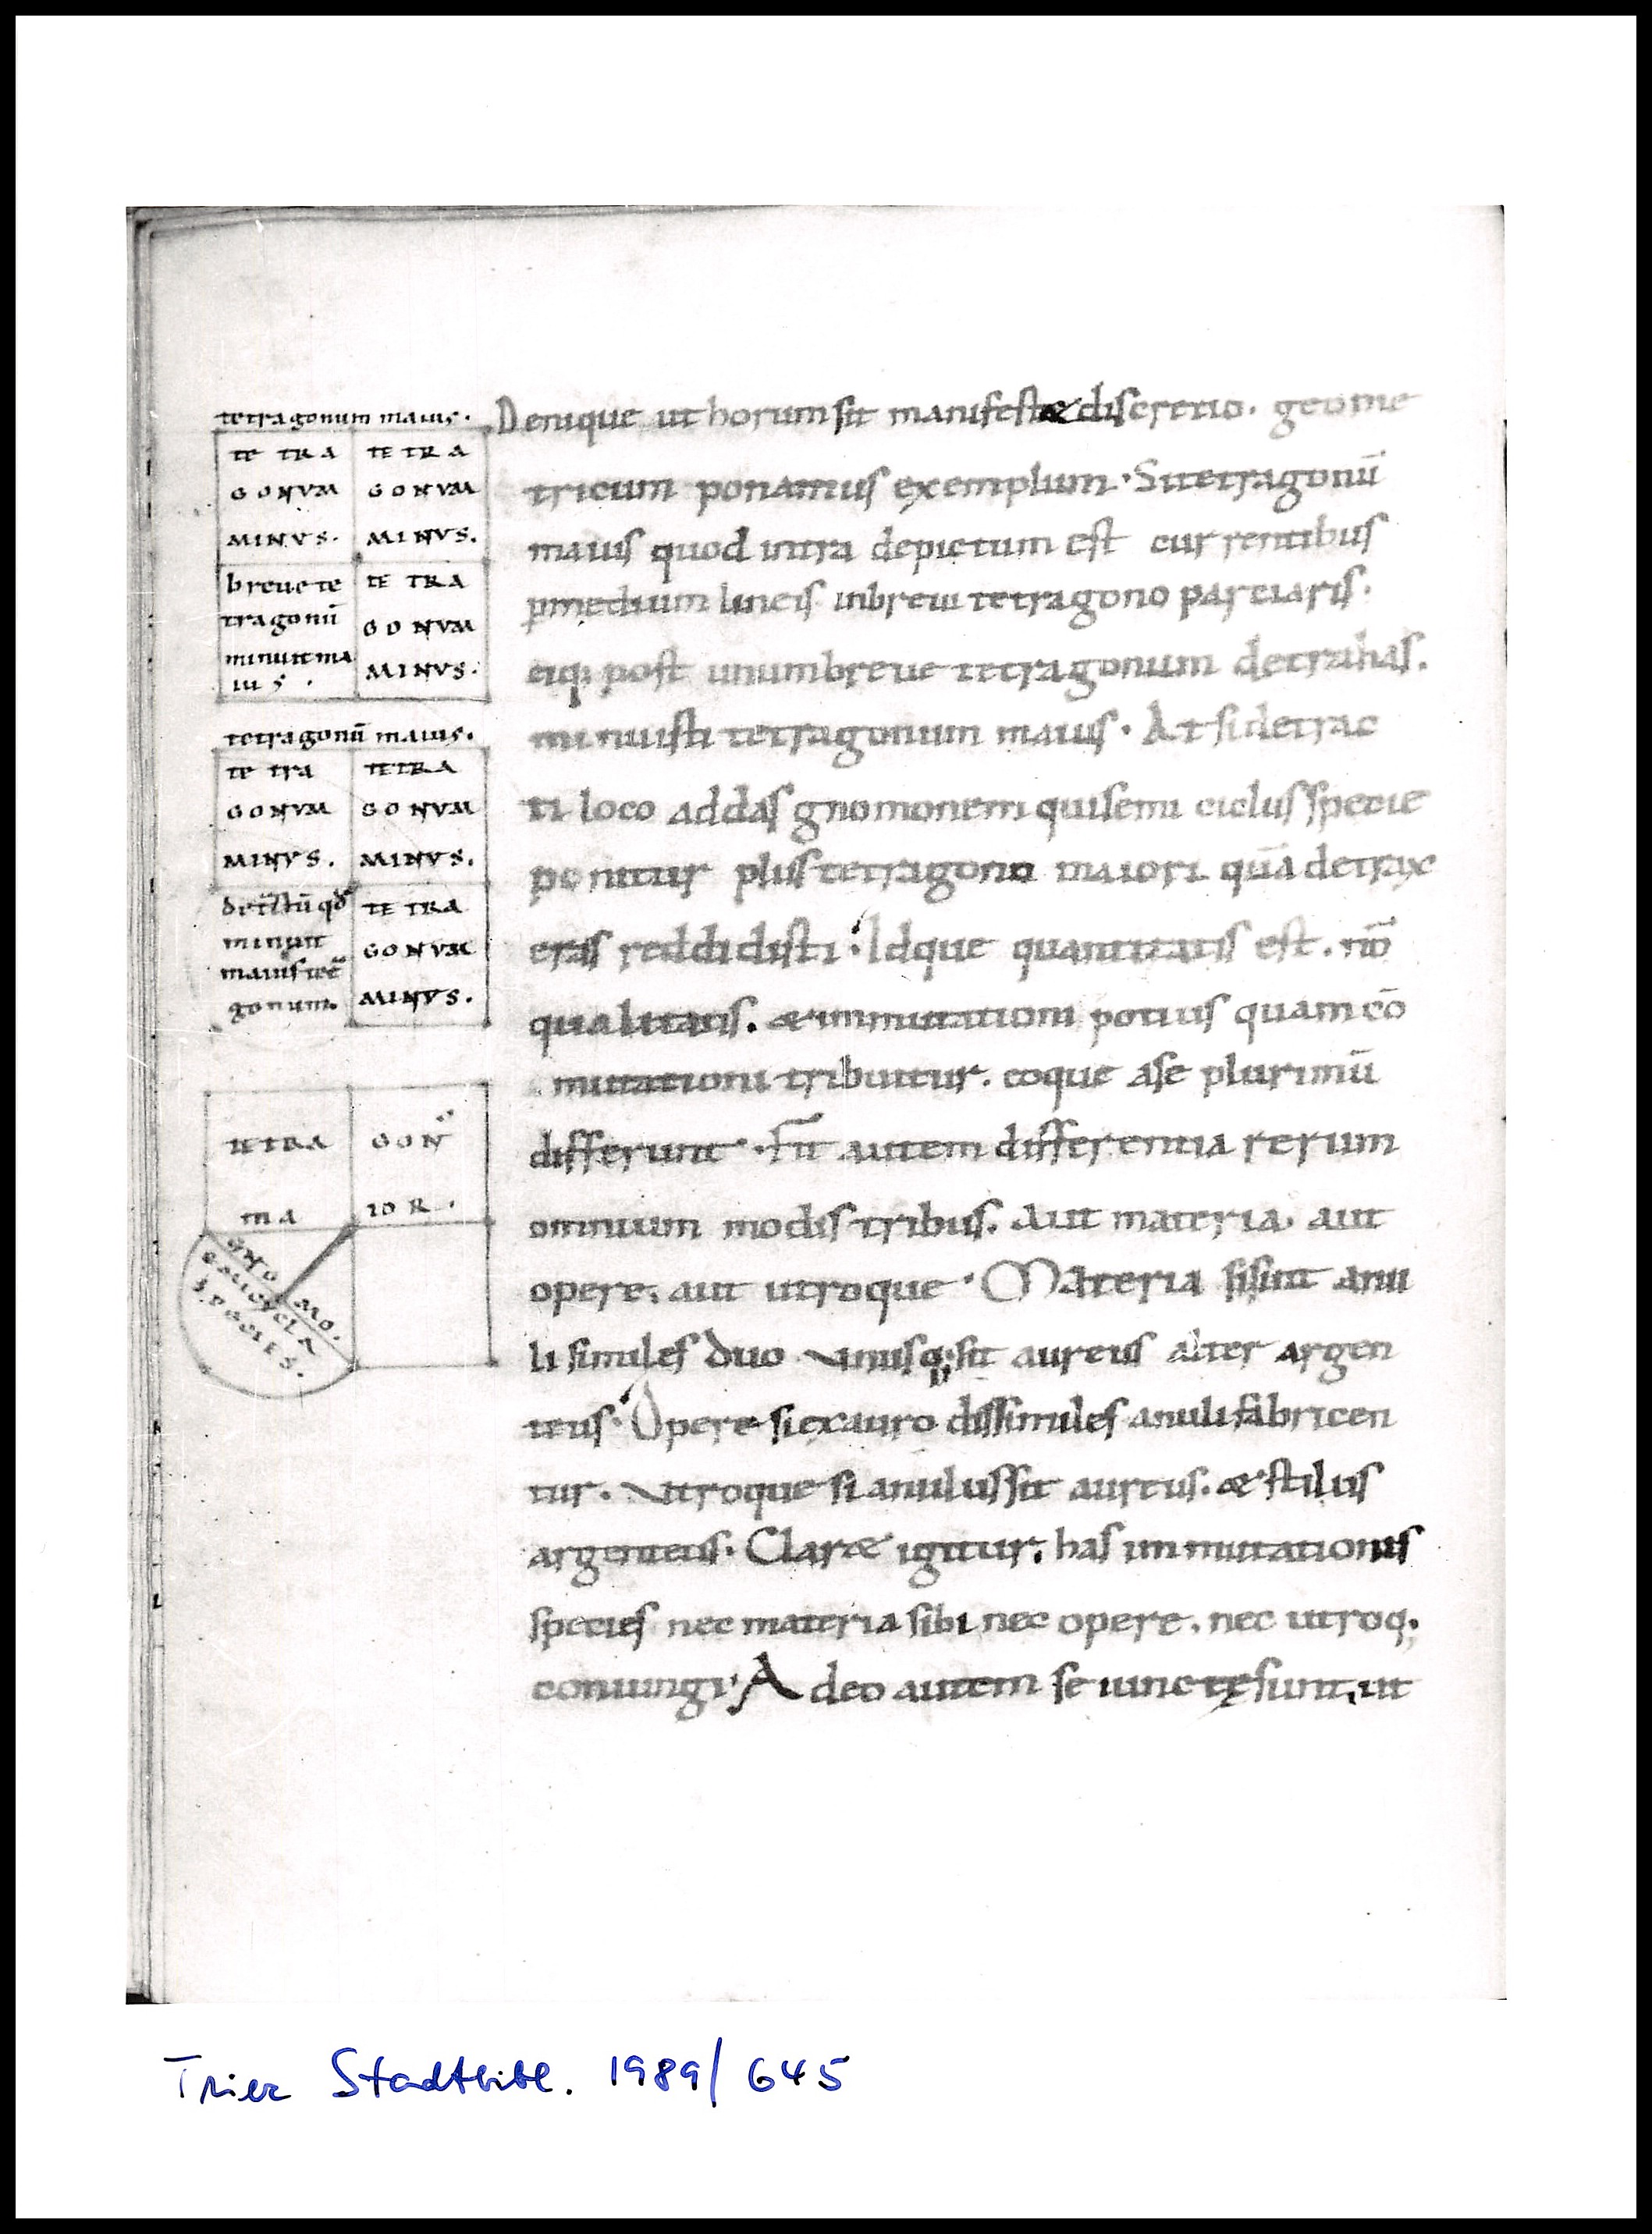 tetragonum maius.
TE TRA
GONVM
MINVS.
TETRA
GONVM
MINVS.
breue te
tragonū
minuit ma
ius.
TE TRA
GONVM
MINVS.
tetragonū maius.
te tra
GONVM
MINVS.
TETRA
GONVM
MINVS.
minuit
maius
gonum.
TE TRA
GONVM
MINVS.
TETRA GON
MA IOR.
GNO MO.
SPECIES.
Denique ut horum sit manifesta discretio. geome
tricum ponamus exemplum. Si tetragonū
maius quod intra depictum est currentibus
pmedium lineis inbreui tetragono parciaris.
eiq; post unumbreue tetragonum detrahas.
minuisti tetragonum maius. At si detrac
ti loco addas gnomonem qui semi ciclus specie
ponitur plus tetragono maiori quā detrax
eras reddidisti. Idque quantitatis est. nō
qualitatis. & immutationi potius quam cō
mutationi tribuitur. eoque ase plurimū
differunt. Fit autem differentia rerum
omnium modis tribus. Aut materia. aut
opere. aut utroque. Materia si sint anu
li similes duo unusq; sit aureus alter argen
teus. Opere si ex auro dissimiles anuli fabricen
tur. Vtroque si anulus sit aureus. & stilus
argenteus. Claret igitur. has immutationis
species nec materia sibi nec opere. nec utroq;
coniungi. A deo autem se iunctę sunt. ut
Trier Stadtbibl. 1989/645